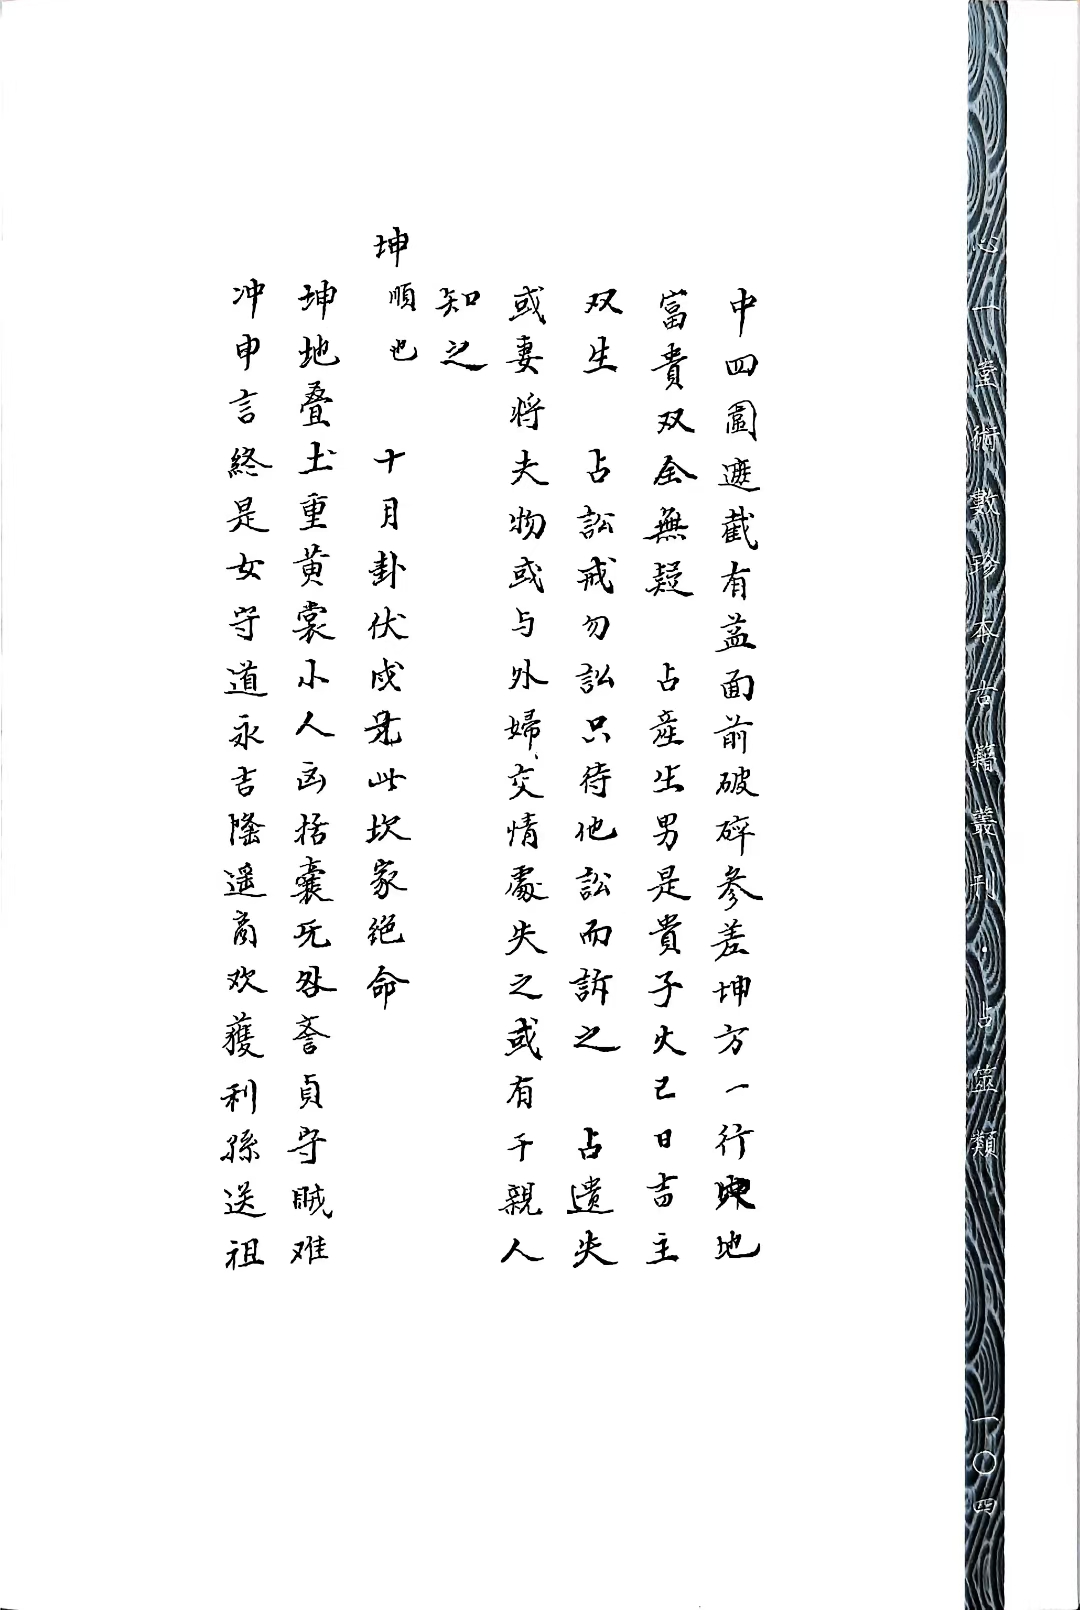 中四圍遮截有益面前破碎參差坤方一行與地
富貴双全無疑　占產生男是貴子火己日吉主
双生　占訟戒勿訟只待他訟而訴之　占遺失
或妻將夫物或与外婦交情處失之或有干親人
知之
坤順也　十月卦伏成此坎家絕命
坤地叠土重黃裳小人凶括囊无咎吝貞守賊难
冲申言終是女守道永吉隆遥商欢獲利孫送祖
心一堂術數珍本古籍叢刊·占筮類
一〇四